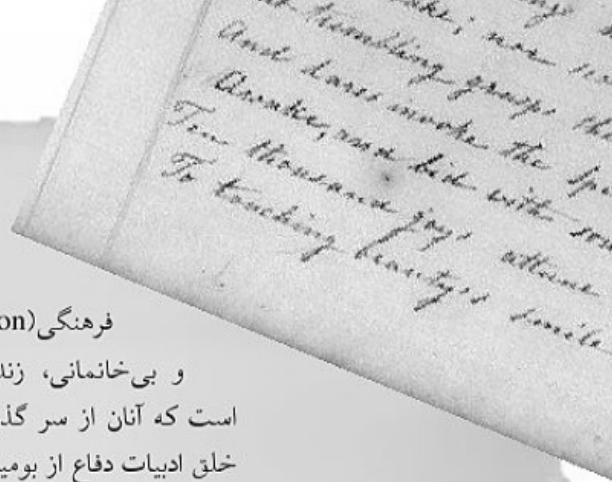 trembling groups
And dares invoke the
Awake, and bid with
Ten thousand joys attune
To touching beauty's smile
فرهنگی(on
و بی‌خانمانی، زند
است که آنان از سر گذ
خلق ادبیات دفاع از بومی